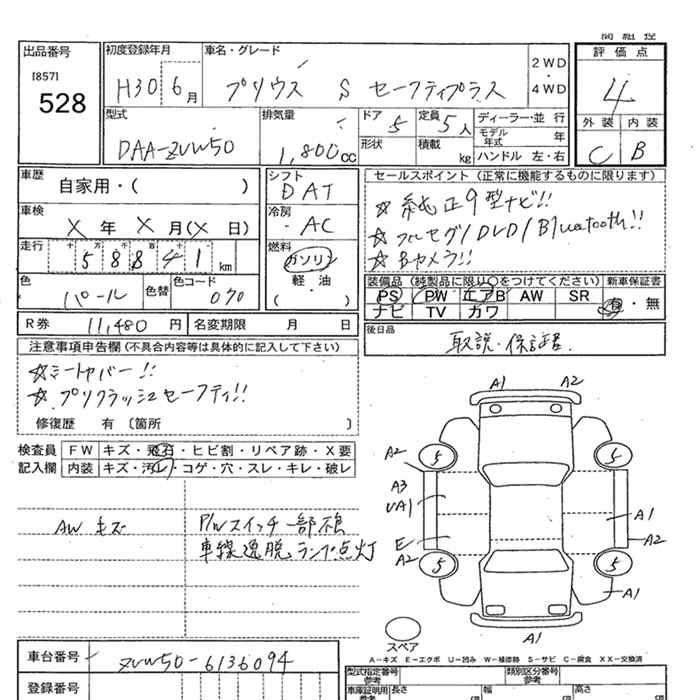 出品番号
[857]
528
初度登録年月
H30 6月
車名・グレード
プリウス S セーフティプラス
2WD
・
4WD
評価点
4
外装 内装
C B
型式
DAA-ZVW50
排気量
1,800cc
ドア 5
形状
定員 5人
積載 kg
ディーラー・並 行
モデル年式 年
ハンドル 左・右
車歴
自家用・( )
車検
X 年 X 月(X 日)
走行
十 万 千 百 十
58841 km
色
パール
色替
色コード
070
シフト
DAT
冷房
AC
燃料
ガソリン
軽・油
( )
セールスポイント (正常に機能するものに限ります)
☆ 純正9型ナビ!!
☆ フルセグ/DVD/Bluetooth!!
☆ Bカメラ!!
装備品 (純製品に限り○をつけてください)
PS PW エアB AW SR
ナビ TV カワ
新車保証書
有・無
R券 11,480 円
名変期限 月 日
後日品
取説・保証書.
注意事項申告欄 (不具合内容等は具体的に記入して下さい)
☆シートカバー!!
☆プリクラッシュセーフティ!!
修復歴 有 〔箇所 〕
検査員
記入欄
FW キズ・飛石・ヒビ割・リペア跡・X要
内装 キズ・汚レ・コゲ・穴・スレ・キレ・破レ
AW キズ
P/Wスイッチ一部不良
車線逸脱ランプ点灯
A1 A2
5 5
A2
A3
UA1
E
A2
A1
A2
5 5
A1
A1
スペア
A-キズ E-エクボ U-凹み W-補修跡 S-サビ C-腐食 XX-交換済
車台番号
ZVW50-6136094
登録番号
型式指定番号
参考
類別区分番号
参考
車庫証明用
参考
長さ
幅
高さ